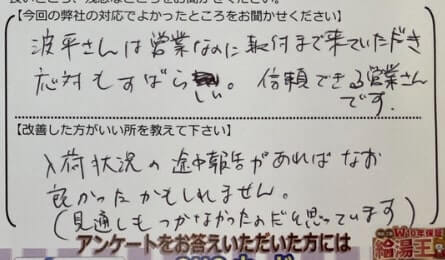 良いところ、残念なところをお聞かせください
【今回の弊社の対応でよかったところをお聞かせください】
波平さんは営業なのに取付まで来ていただき
応対もすばらしい。信頼できる営業さん
です.
【改善した方がいい所を教えて下さい】
入荷状況の途中報告があればなお
良かったかもしれません。
(見通しもつかなかったのだと思っています)
アンケートをお答えいただいた方には
W10年保証
給湯王